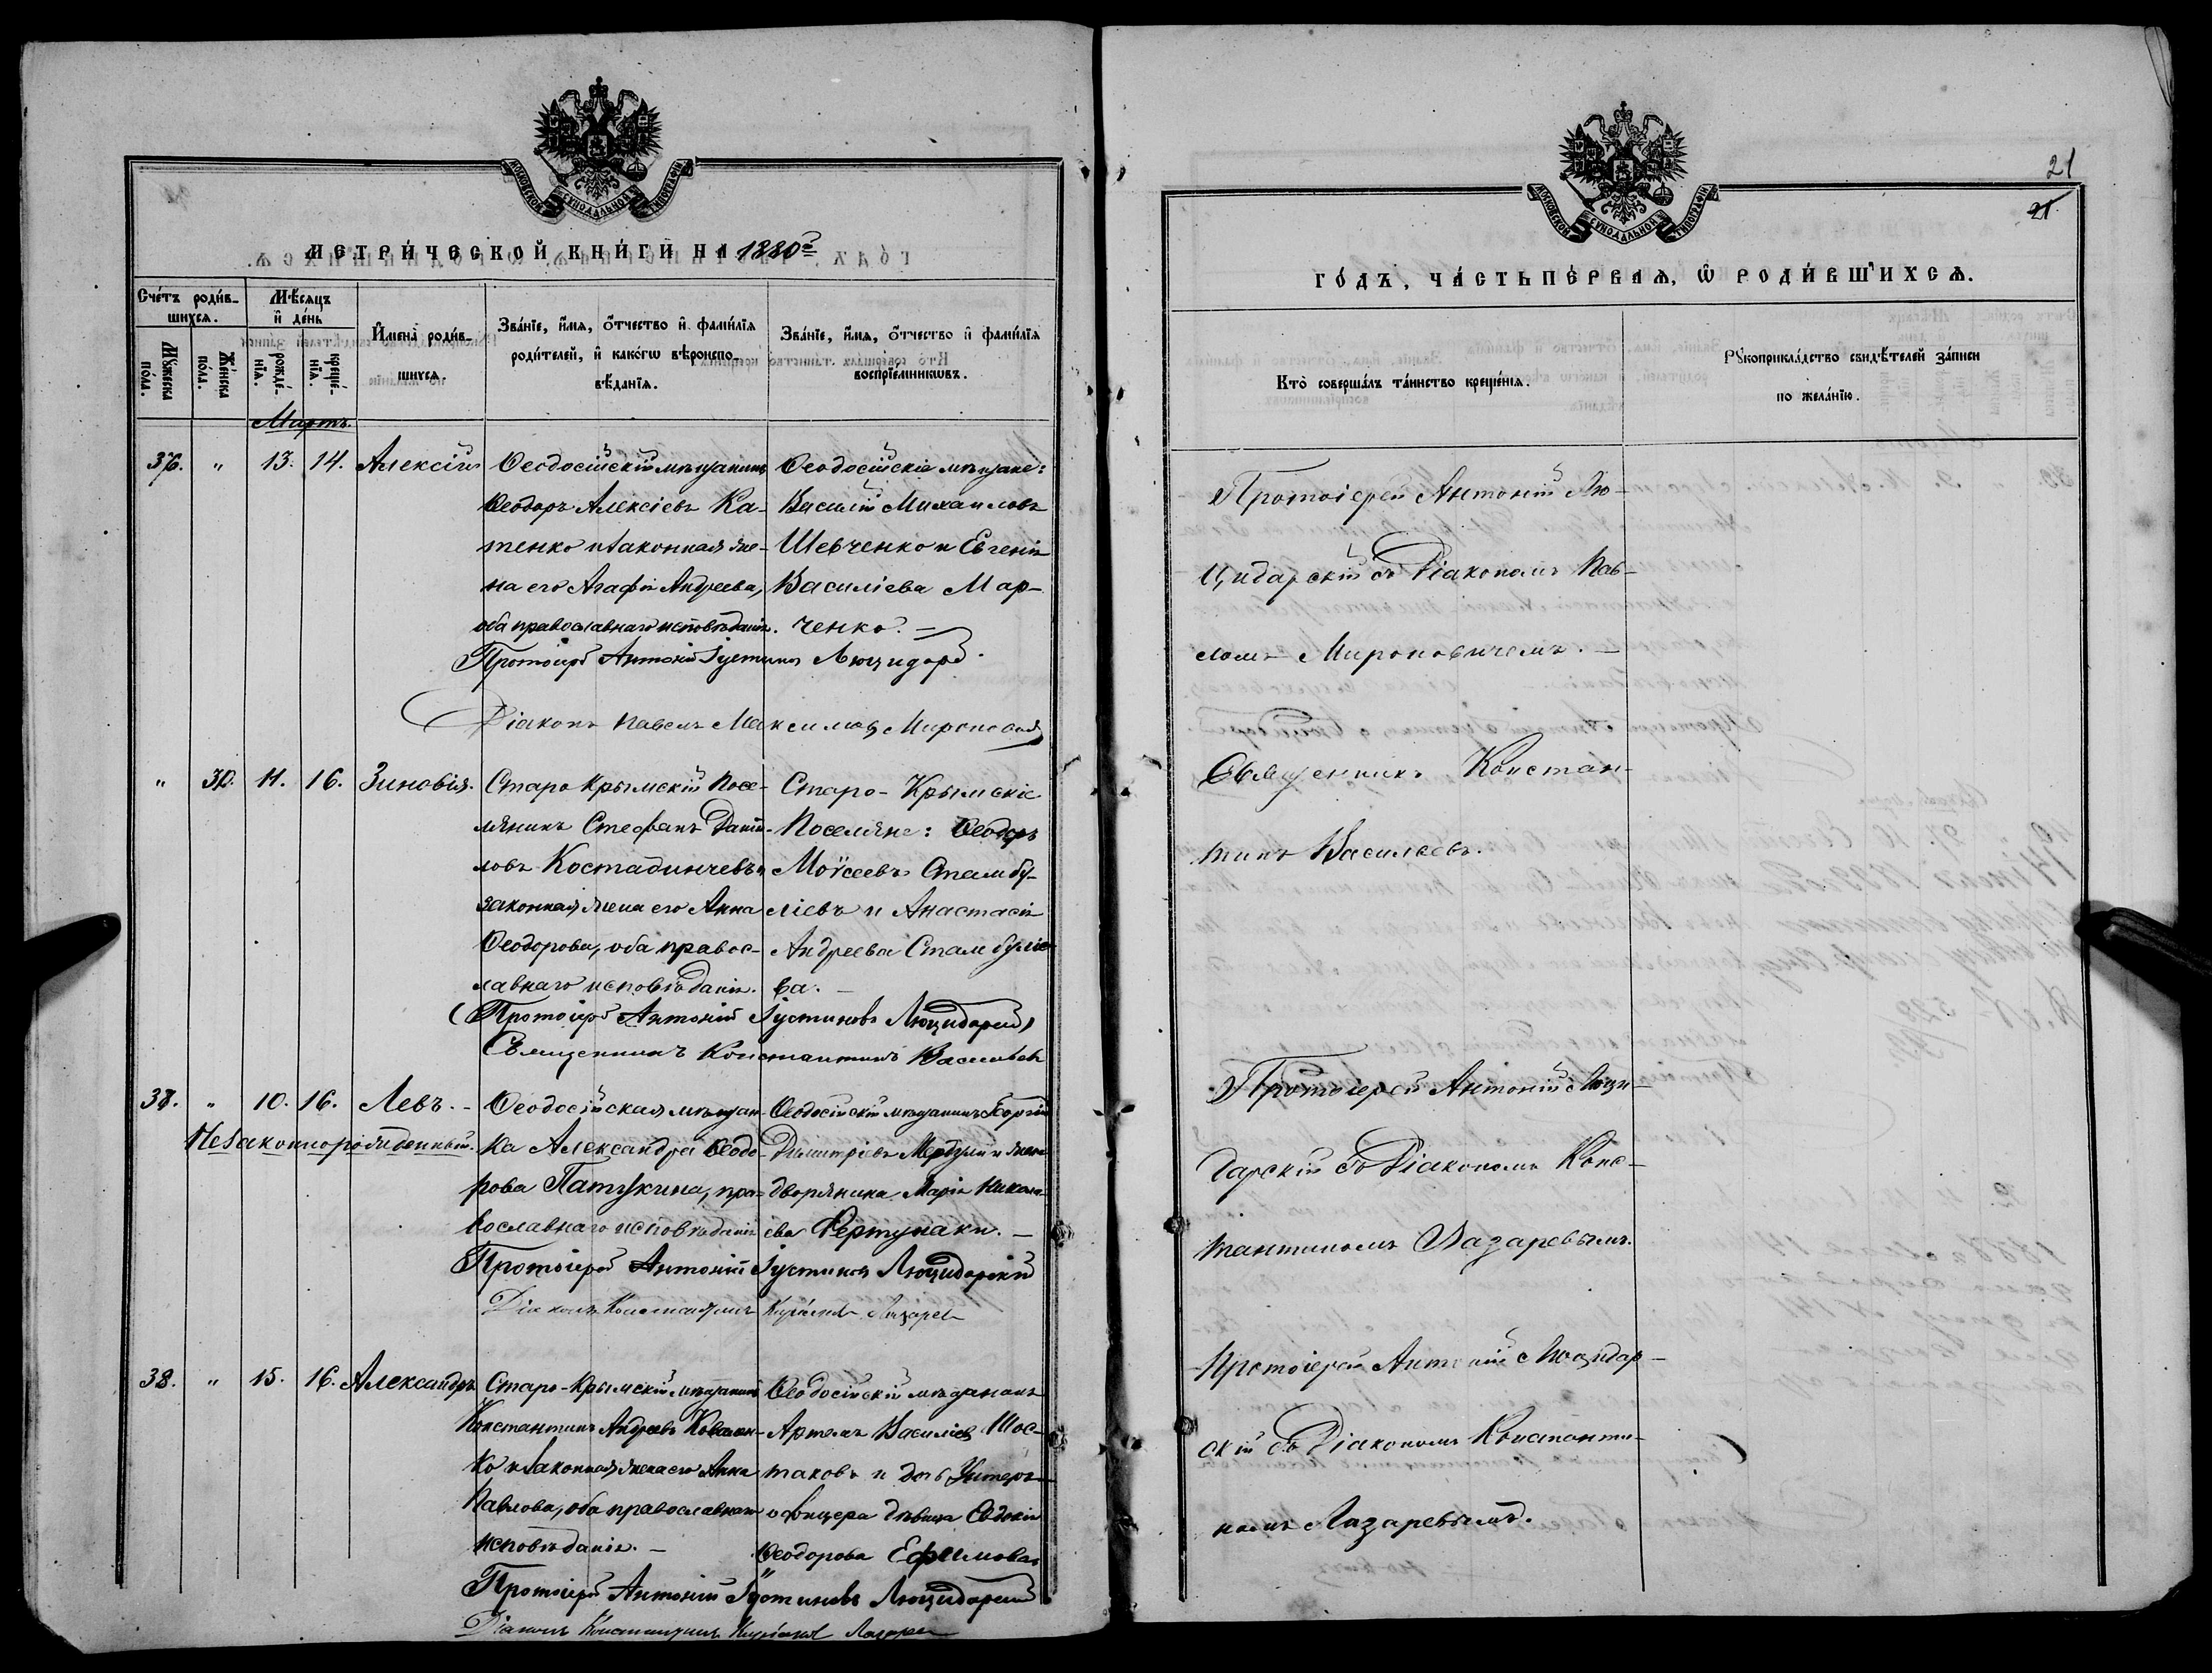 МОСКОВСКОЙ СѴНОДАЛЬНОЙ ТИПОГРАФІИ
МЕТРИ́ЧЕСКОЙ КНИ́ГИ НА 1880 г
Сче́тъ роди́в-
шихсѧ.
Мѣ́сѧцъ
и҆ де́нь
И҆мена̀ роди́в-
шихсѧ
Зва́нїе, и҆́мѧ, ѻ҆́тчество и҆ фами́лїѧ
роди́телей, и҆ како́гѡ вѣроиспо-
вѣ́данїѧ.
Зва́нїе, и҆́мѧ, ѻ҆́тчество и҆ фами́лїѧ
воспрїе́мникѡвъ.
Мꙋ́жеска по́ла.
Же́нска по́ла.
рожде́-
нїѧ.
креще́-
нїѧ.
Мартъ.
36. " 13. 14. Алексій
Ѳеодосійскій мѣщанинъ
Ѳеодоръ Алексіевъ Ка-
тенко и законная же-
на его Агафія Андреева,
оба православнаго исповѣданія.
Ѳеодосійскіе мѣщане:
Василій Михаиловъ
Шевченко и Евгенія
Василіева Мар-
ченко. —
Протоіерей Антоній Іустиновъ Люцидарс
Діаконъ Павелъ Максимовъ Мироновъ
" 30. 11. 16. Зиновія.
Старо Крымскій посе-
лянинъ Стефанъ Даніи-
ловъ Костадинчевъ и
законная жена его Анна
Ѳеодорова, оба правос-
лавнаго исповѣданія.
Старо-Крымскіе
Поселяне: Ѳеодоръ
Моѵсеевъ Стамбу-
ліевъ и Анастасія
Андреева Стамбуліе-
ва. —
Протоіерей Антоній Іустиновъ Люцидарскій
Священникъ Константинъ Васильевъ
37. " 10. 16. Левъ. -
Незаконнорожденный.
Ѳеодосійская мѣщан-
ка Александра Ѳеодо-
рова Патукина, пра-
вославнаго исповѣданія
Ѳеодосійскій мѣщанинъ Георгій
Димитріевъ и жена
дворянина Марія Никола-
ева Фертунаки. —
Протоіерей Антоній Іустиновъ Люцидарскій
Діаконъ Константинъ Лазарев
38. " 15. 16. Александръ
Старо-Крымскій мѣщанинъ
Константинъ Андреевъ Ковален-
ко и законная жена его Анна
Павлова, оба православнаго
исповѣданія. —
Ѳеодосійскій мѣщанинъ
Артемъ Василіевъ Шос-
таковъ и дочь Унтеръ-
офицера дѣвица Евдокія
Ѳеодорова Ефимова
Протоіерей Антоній Іустиновъ Люцидарскій
Діаконъ Константинъ Лазарев
21
21.
МОСКОВСКОЙ СѴНОДАЛЬНОЙ ТИПОГРАФІИ
ГО́ДЪ, ЧА́СТЬ ПЕ́РВАѦ, Ѡ҆ РОДИ́ВШИХСѦ.
Кто̀ соверша́лъ та́инство креще́нїѧ.
Рꙋкоприкла́дство свидѣ́телей за́писи
по жела́нїю.
Протоіерей Антоній Лю-
цидарскій съ Діакономъ Пав-
ломъ Мироновичемъ. —
Священникъ Констан-
тинъ Васильевъ.
Протоіерей Антоній Люци-
дарскій съ Діакономъ Конс-
тантиномъ Лазаревымъ.
Протоіерей Антоній Люцидар-
скій съ Діакономъ Константи-
номъ Лазаревымъ.